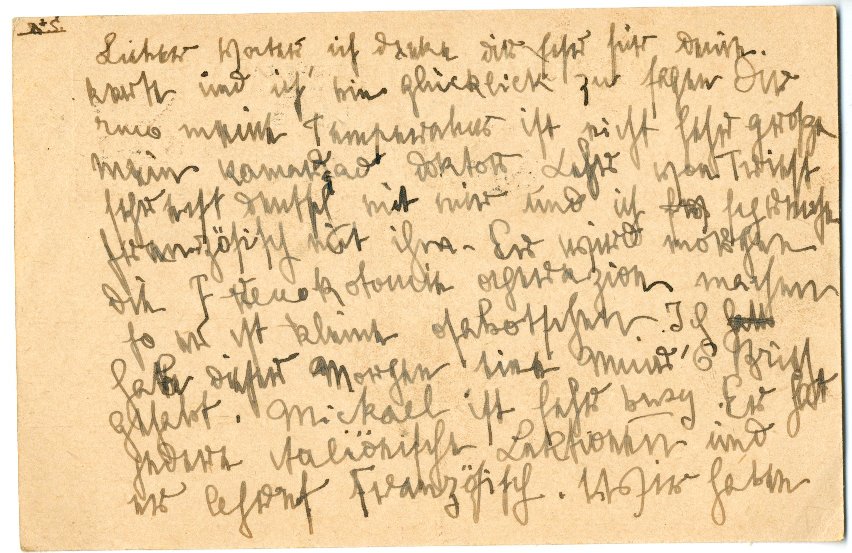 Lieber Vater, ich danke dir sehr für deine
karte und ich bin glücklich zu sagen Dir
meine Temperatur ist nicht sehr große
mein kamarad doktor Lehr von Triest
sehr oft deutsch mit mir und ich spreche
französisch mit ihm. Er wird morgen
die Frenokotomie operazion machen
so er ist kleine
habe dieser Morgen eine Brief
gehabt. Mickael ist sehr busy. Er hat
jedere italiönische Lektionen und
er lehrt Französisch. Wir haben